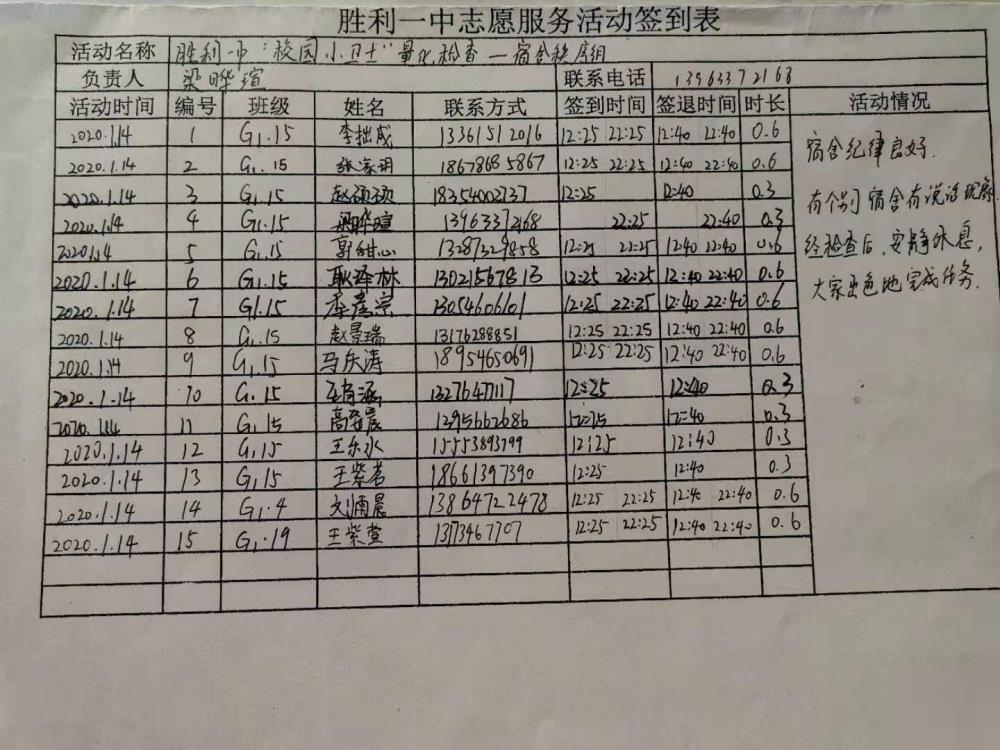 胜利一中志愿服务活动签到表
活动名称 胜利一中"校园小卫士"量化检查—宿舍秩序组
负责人 梁晔瑄 联系电话 13963372168
活动时间 编号 班级 姓名 联系方式 签到时间 签退时间 时长 活动情况
2020.1.14 1 G1.15 李拙成 13361512016 12:25 22:25 12:40 22:40 0.6
2020.1.14 2 G1.15 18678685867 12:25 22:25 12:40 22:40 0.6
2020.1.14 3 G1.15 赵硕硕 18354002737 12:25 12:40 0.3
2020.1.14 4 G1.15 梁晔瑄 13963372168 22:25 22:40 0.3
2020.1.14 5 G1.15 郭甜心 12:25 22:25 12:40 22:40 0.6
2020.1.14 6 G1.15 耿泽林 13021567813 12:25 22:25 12:40 22:40 0.6
2020.1.14 7 G1.15 李彦宗 13054606101 12:25 22:25 12:40 22:40 0.6
2020.1.14 8 G1.15 赵景瑞 13176288851 12:25 22:25 12:40 22:40 0.6
2020.1.14 9 G1.15 马庆涛 18954650691 12:25 22:25 12:40 22:40 0.6
2020.1.14 10 G1.15 12:25 12:40 0.3
2020.1.14 11 G1.15 1295662686 12:25 12:40 0.3
2020.1.14 12 G1.15 王乐水 15553893799 12:25 12:40 0.3
2020.1.14 13 G1.15 王紫茗 18661397390 12:25 12:40 0.3
2020.1.14 14 G1.4 13864722478 12:25 22:25 12:40 22:40 0.6
2020.1.14 15 G1.19 王紫萱 1373467707 12:25 22:25 12:40 22:40 0.6
宿舍纪律良好.
有个别宿舍有说话现象,
经检查后,安静休息,
大家出色地完成任务.